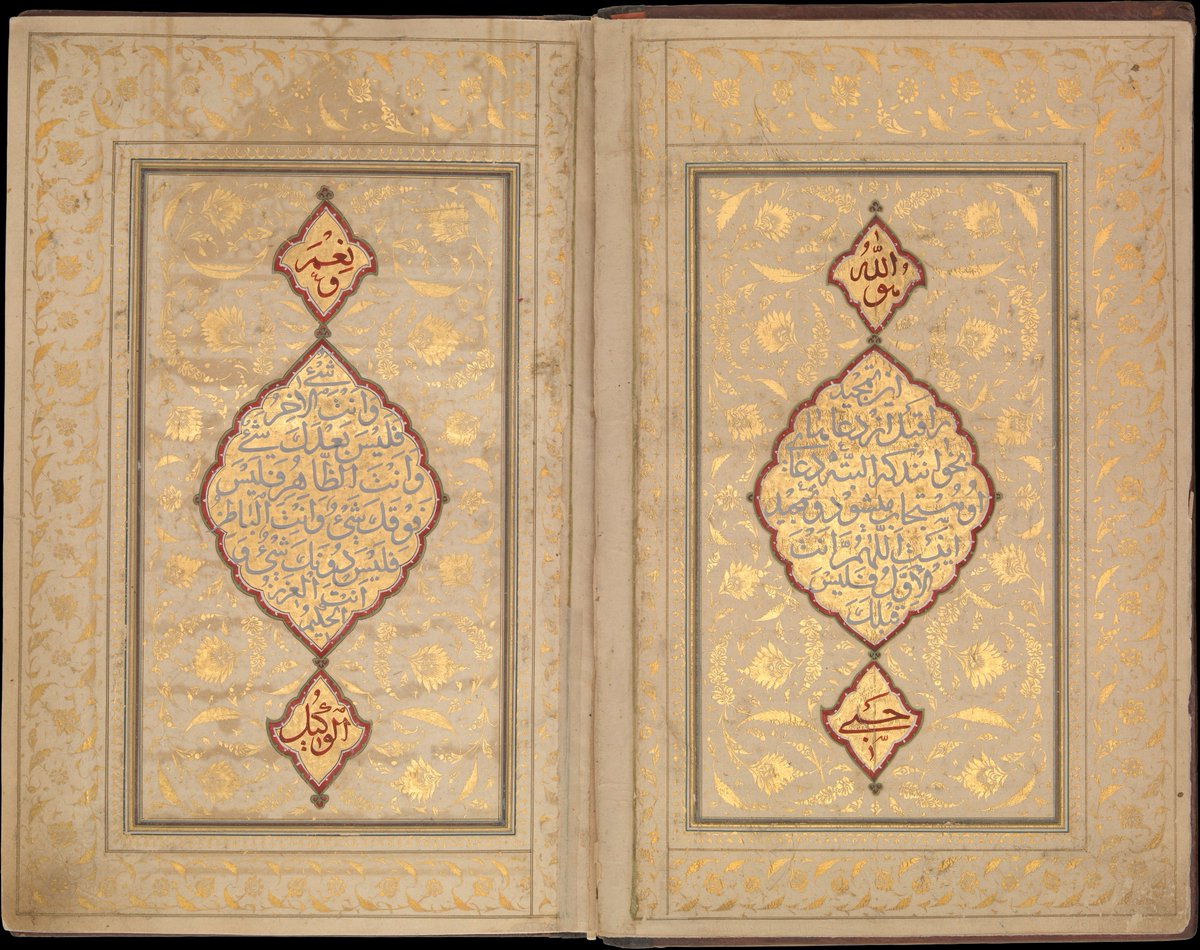 هو الله
این تمجید
را قبل از دعاها
بخوانند که البته دعای
او مستجاب میشود و تمجید
اینست اللهمّ انت
الأوّل فلیس
قبلک
حسبی
ونعم
شئ
وانت الآخر
فلیس بعدک شئ
وانت الظّاهر فلیس
فوقک شئ وانت الباطن
فلیس دونک شئ و
انت العزیز
الحکیم
الوکیل